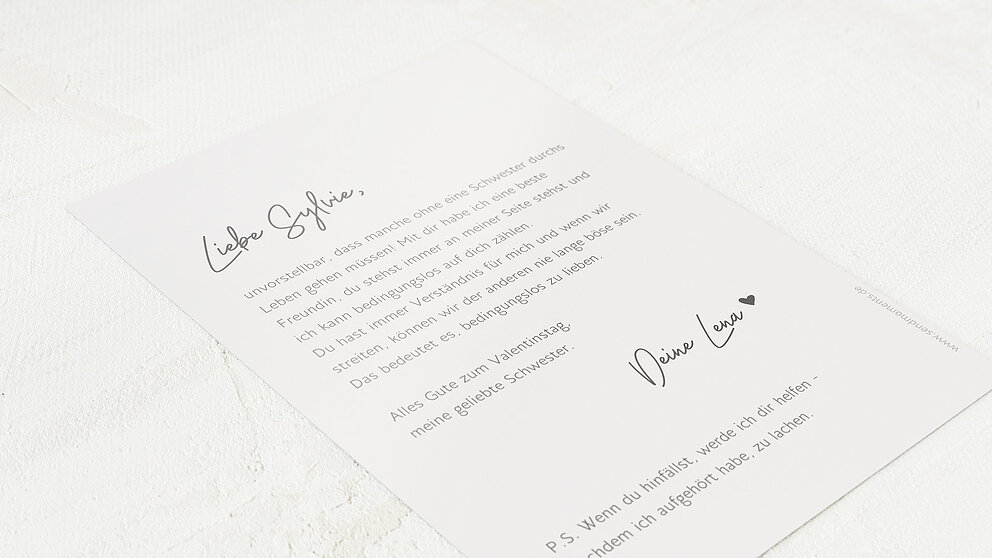 Liebe Sylvie,
unvorstellbar, dass manche ohne eine Schwester durchs
Leben gehen müssen! Mit dir habe ich eine beste
Freundin, du stehst immer an meiner Seite stehst und
ich kann bedingungslos auf dich zählen.
Du hast immer Verständnis für mich und wenn wir
streiten, können wir der anderen nie lange böse sein.
Das bedeutet es, bedingungslos zu lieben.
Alles Gute zum Valentinstag,
meine geliebte Schwester.
Deine Lena
P.S. Wenn du hinfällst, werde ich dir helfen -
chdem ich aufgehört habe, zu lachen.
www.sendmoments.de